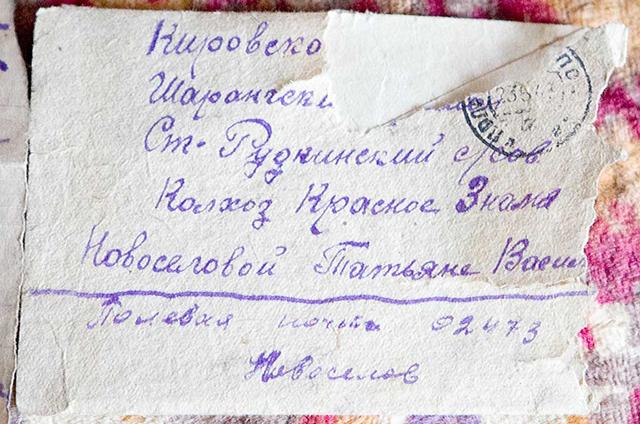 Кировско
Шарангски
Ст-Рудкинский с/сов
Колхоз Красное Знамя
Новоселовой Татьяне Васил
Полевая почта 02473
Новоселов